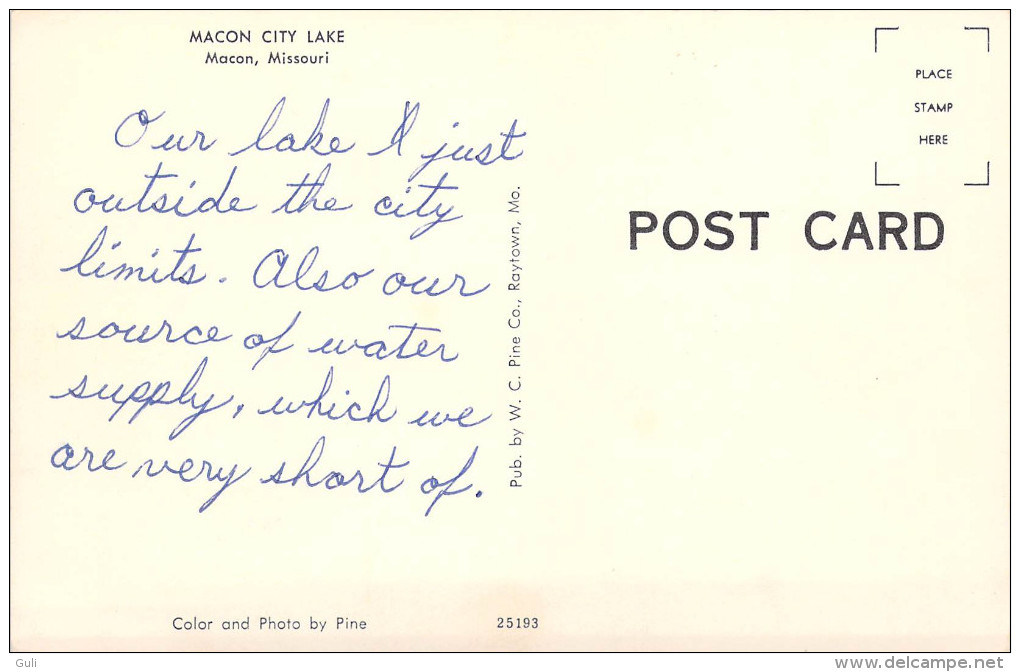 MACON CITY LAKE
Macon, Missouri
Our lake just
outside the city
limits. Also our
source of water
supply, which we
are very short of.
Pub. by W. C. Pine Co., Raytown, Mo.
PLACE
STAMP
HERE
POST CARD
Color and Photo by Pine
25193
Guli
www.delcampe.net